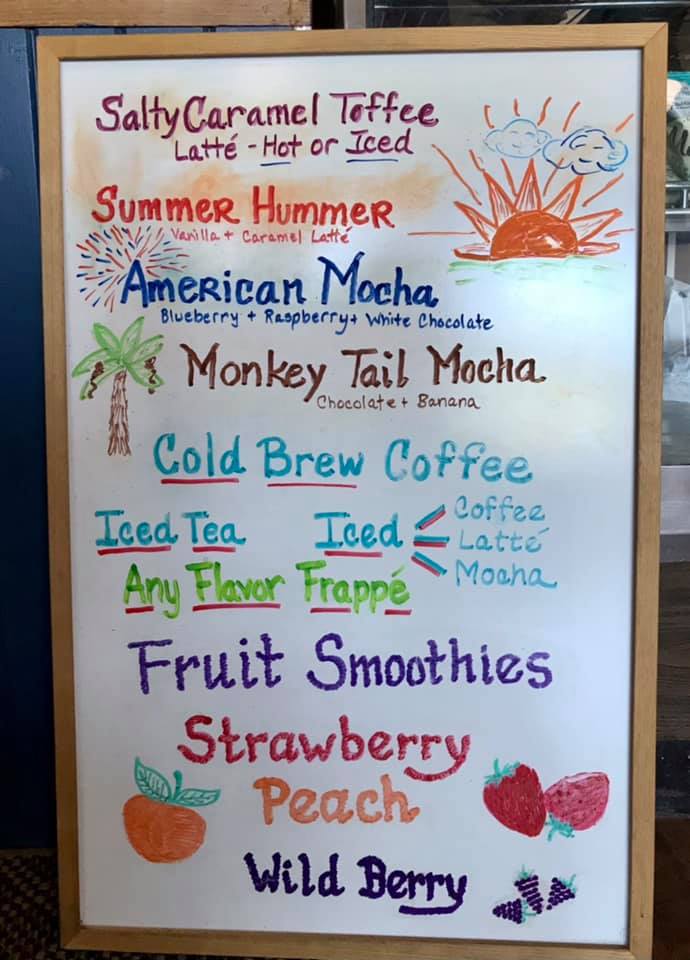 Salty Caramel Toffee
Latté - Hot or Iced
Summer Hummer
Vanilla + Caramel Latté
American Mocha
Blueberry + Raspberry + White Chocolate
Monkey Tail Mocha
Chocolate + Banana
Cold Brew Coffee
Iced Tea
Iced
Coffee
Latté
Mocha
Any Flavor Frappé
Fruit Smoothies
Strawberry
Peach
Wild Berry